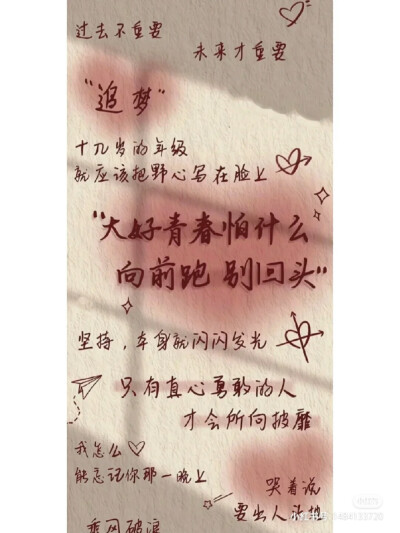 过去不重要
未来才重要
"追梦"
十几岁的年级
就应该把野心写在脸上
"大好青春怕什么
向前跑 别回头"
坚持，本身就闪闪发光
只有真心勇敢的人
才会所向披靡
我怎么♡
能忘记你那一晚上
哭着说
要出人头地
乘风破浪